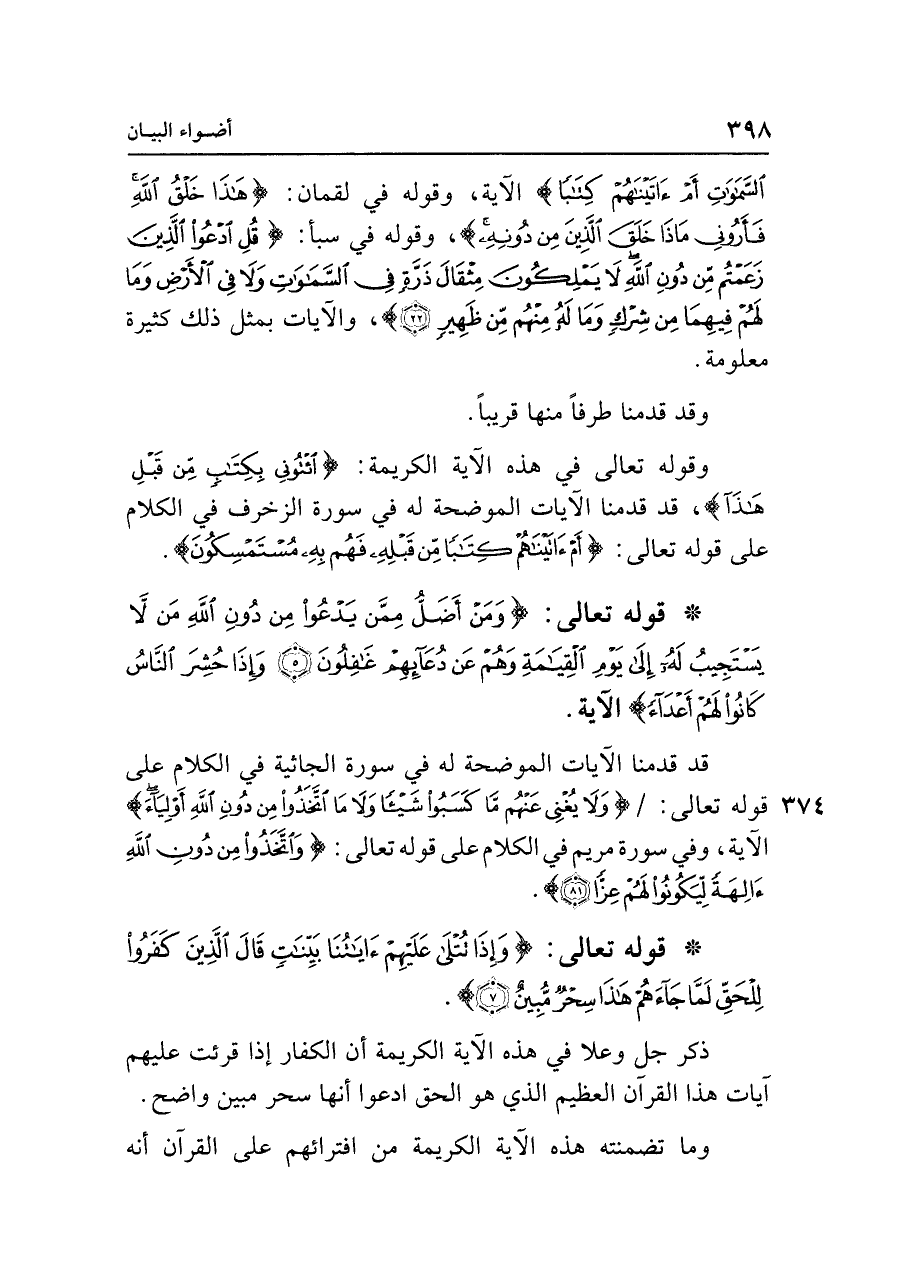 ٣٩٨ أضواء البيان
السَّمَٰوَٰتِ أَمْ ءَاتَيْنَٰهُمْ كِتَٰبًا﴾ الآية، وقوله في لقمان: ﴿هَٰذَا خَلْقُ ٱللَّهِ
فَأَرُونِي مَاذَا خَلَقَ ٱلَّذِينَ مِن دُونِهِۦۚ﴾، وقوله في سبأ: ﴿قُلِ ٱدْعُوا۟ ٱلَّذِينَ
زَعَمْتُم مِّن دُونِ ٱللَّهِۖ لَا يَمْلِكُونَ مِثْقَالَ ذَرَّةٍ فِي ٱلسَّمَٰوَٰتِ وَلَا فِي ٱلْأَرْضِ وَمَا
لَهُمْ فِيهِمَا مِن شِرْكٍ وَمَا لَهُۥ مِنْهُم مِّن ظَهِيرٍ ٢٢﴾، والآيات بمثل ذلك كثيرة
معلومة.
وقد قدمنا طرفاً منها قريباً.
وقوله تعالى في هذه الآية الكريمة: ﴿ٱئْتُونِي بِكِتَٰبٍ مِّن قَبْلِ
هَٰذَآ﴾، قد قدمنا الآيات الموضحة له في سورة الزخرف في الكلام
على قوله تعالى: ﴿أَمْ ءَاتَيْنَٰهُمْ كِتَٰبًا مِّن قَبْلِهِۦ فَهُم بِهِۦ مُسْتَمْسِكُونَ﴾.
* قوله تعالى: ﴿وَمَنْ أَضَلُّ مِمَّن يَدْعُوا۟ مِن دُونِ ٱللَّهِ مَن لَّا
يَسْتَجِيبُ لَهُۥٓ إِلَىٰ يَوْمِ ٱلْقِيَٰمَةِ وَهُمْ عَن دُعَآئِهِمْ غَٰفِلُونَ ٥ وَإِذَا حُشِرَ ٱلنَّاسُ
كَانُوا۟ لَهُمْ أَعْدَآءً﴾ الآية.
قد قدمنا الآيات الموضحة له في سورة الجاثية في الكلام على
٣٧٤ قوله تعالى: / ﴿وَلَا يُغْنِي عَنْهُم مَّا كَسَبُوا۟ شَيْـًٔا وَلَا مَا ٱتَّخَذُوا۟ مِن دُونِ ٱللَّهِ أَوْلِيَآءَۖ﴾
الآية، وفي سورة مريم في الكلام على قوله تعالى: ﴿وَٱتَّخَذُوا۟ مِن دُونِ ٱللَّهِ
ءَالِهَةً لِّيَكُونُوا۟ لَهُمْ عِزًّا ٨١﴾.
* قوله تعالى: ﴿وَإِذَا تُتْلَىٰ عَلَيْهِمْ ءَايَٰتُنَا بَيِّنَٰتٍ قَالَ ٱلَّذِينَ كَفَرُوا۟
لِلْحَقِّ لَمَّا جَآءَهُمْ هَٰذَا سِحْرٌ مُّبِينٌ ٧﴾.
ذكر جل وعلا في هذه الآية الكريمة أن الكفار إذا قرئت عليهم
آيات هذا القرآن العظيم الذي هو الحق ادعوا أنها سحر مبين واضح.
وما تضمنته هذه الآية الكريمة من افترائهم على القرآن أنه